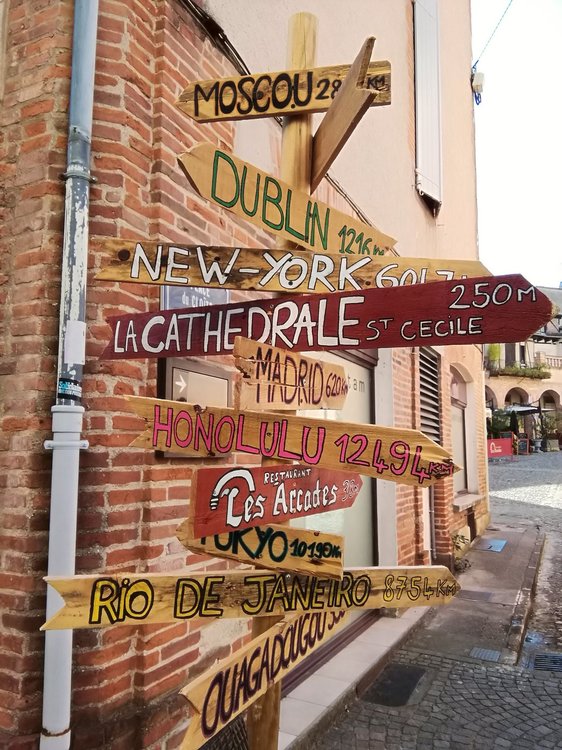 MOSCOU 28 KM
DUBLIN 1216
NEW-YORK 6017
LA CATHEDRALE ST CECILE 250M
MADRID 620KM
HONOLULU 12494KM
RESTAURANT
Les Arcades 30M
TOKYO 10190KM
RIO DE JANEIRO 8754KM
OUAGADOUGOU